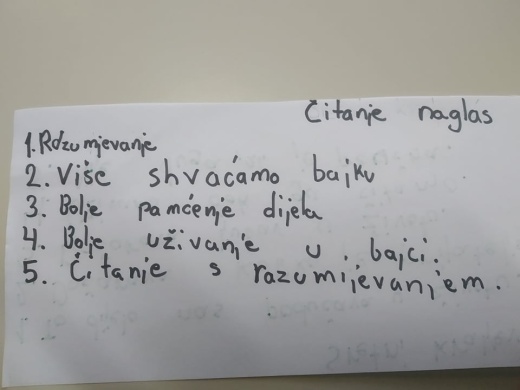 Čitanje naglas
1. Razumjevanje
2. Više shvaćamo bajku
3. Bolje pamćenje dijela
4. Bolje uživanje u bajci.
5. Čitanje s razumijevanjem.